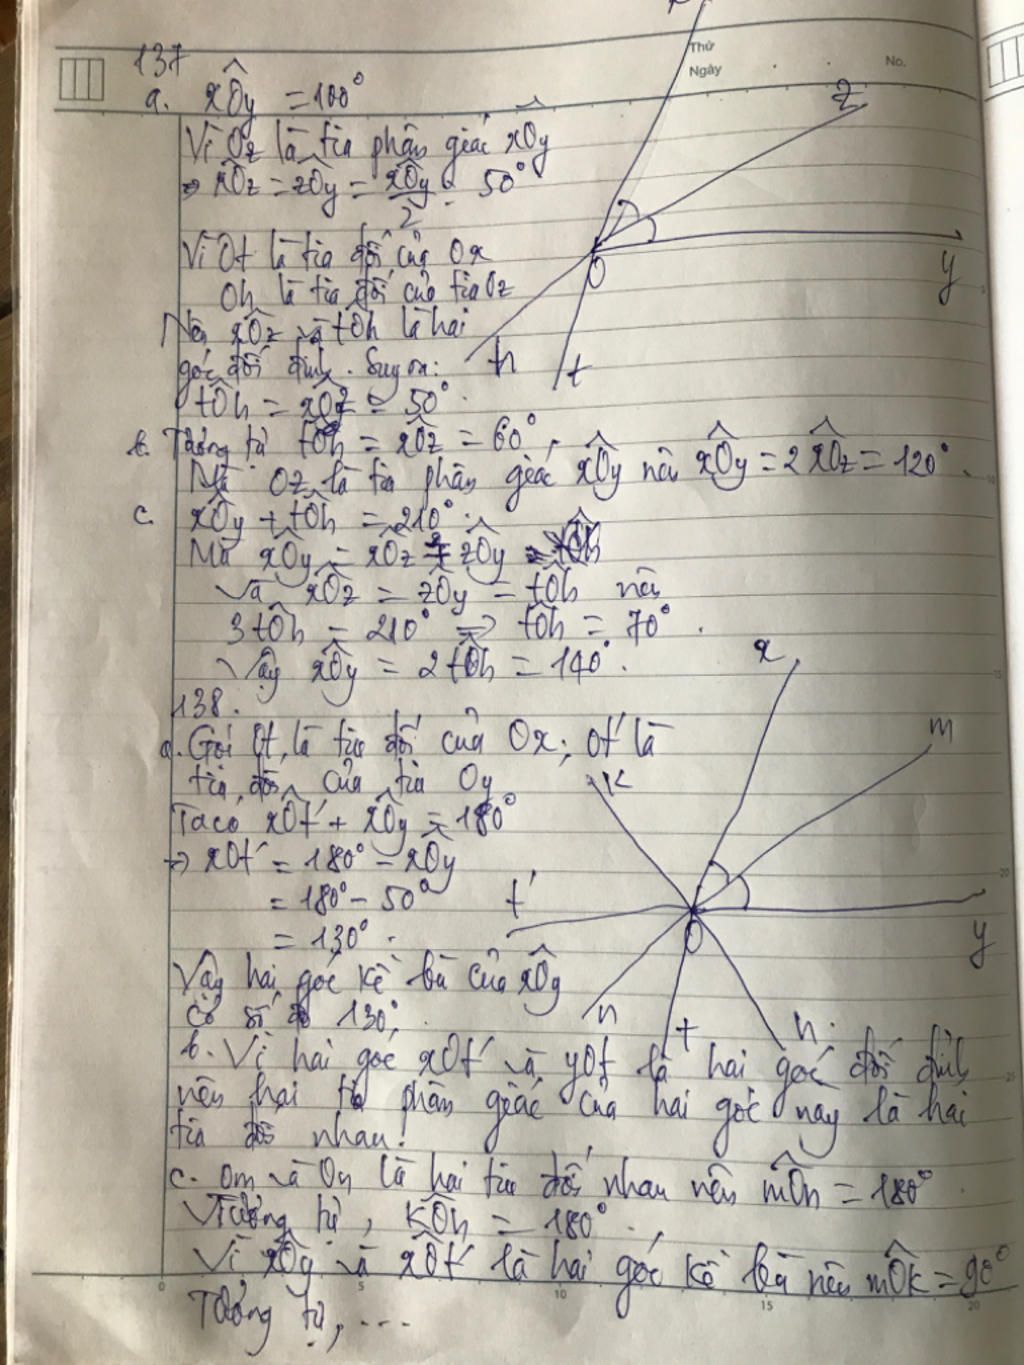 Thứ
Ngày
No.
137
a. xÔy = 100°
Vì Oz là tia phân giác xÔy
⇒ xÔz = zÔy = xÔy/2 = 50°
Vì Ot là tia đối của Ox
Oh là tia đối của tia Oz
Nên xÔz và tÔh là hai
góc đối đỉnh. Suy ra:
tÔh = xÔz = 50°.
b. Tương tự tÔh = xÔz = 60°,
Mà Oz là tia phân giác xÔy nên xÔy = 2xÔz = 120°.
c. xÔy + tÔh = 210°.
Mà xÔy = xÔz + zÔy
Và xÔz = zÔy = tÔh nên
3tÔh = 210° ⇒ tÔh = 70°.
Vậy xÔy = 2tÔh = 140°.
138.
a. Gọi Ot là tia đối của Ox; Ot' là
tia đối của tia Oy
Ta có xÔt' + xÔy = 180°
⇒ xOt' = 180° - xÔy
= 180° - 50°
= 130°.
Vậy hai góc kề bù của xÔy
có số đo 130°.
b. Vì hai góc xOt' và yOt là hai góc đối đỉnh
nên hai tia phân giác của hai góc này là hai
tia đối nhau.
c. Om và On là hai tia đối nhau nên mÔn = 180°.
Tương tự, KÔh = 180°.,
Vì xÔy và xÔt' là hai góc kề bù nên mÔk = 90°
Tương tự, ...
z
O
y
h
t
x
m
K
t'
O
y
n
t
h
0
5
10
15
20